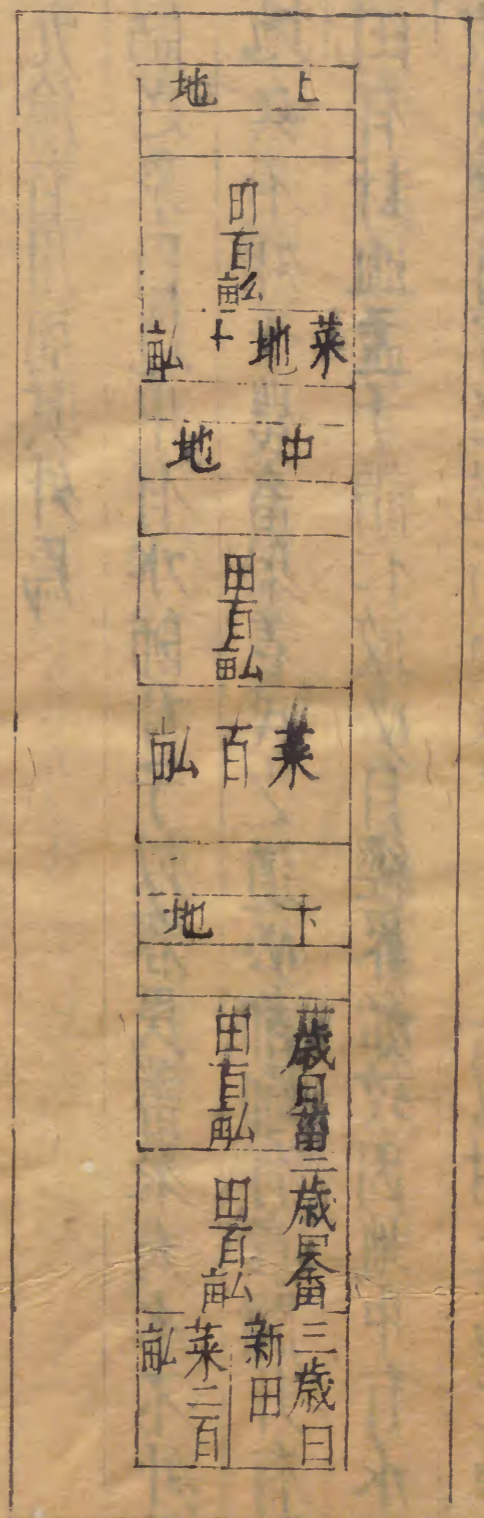 上地
田百畝
萊地十畝
中地
田百畝
萊百畝
下地
歲曰菑
田百畝
二歲曰畬
田百畝
三歲曰
新田
萊二百
畝